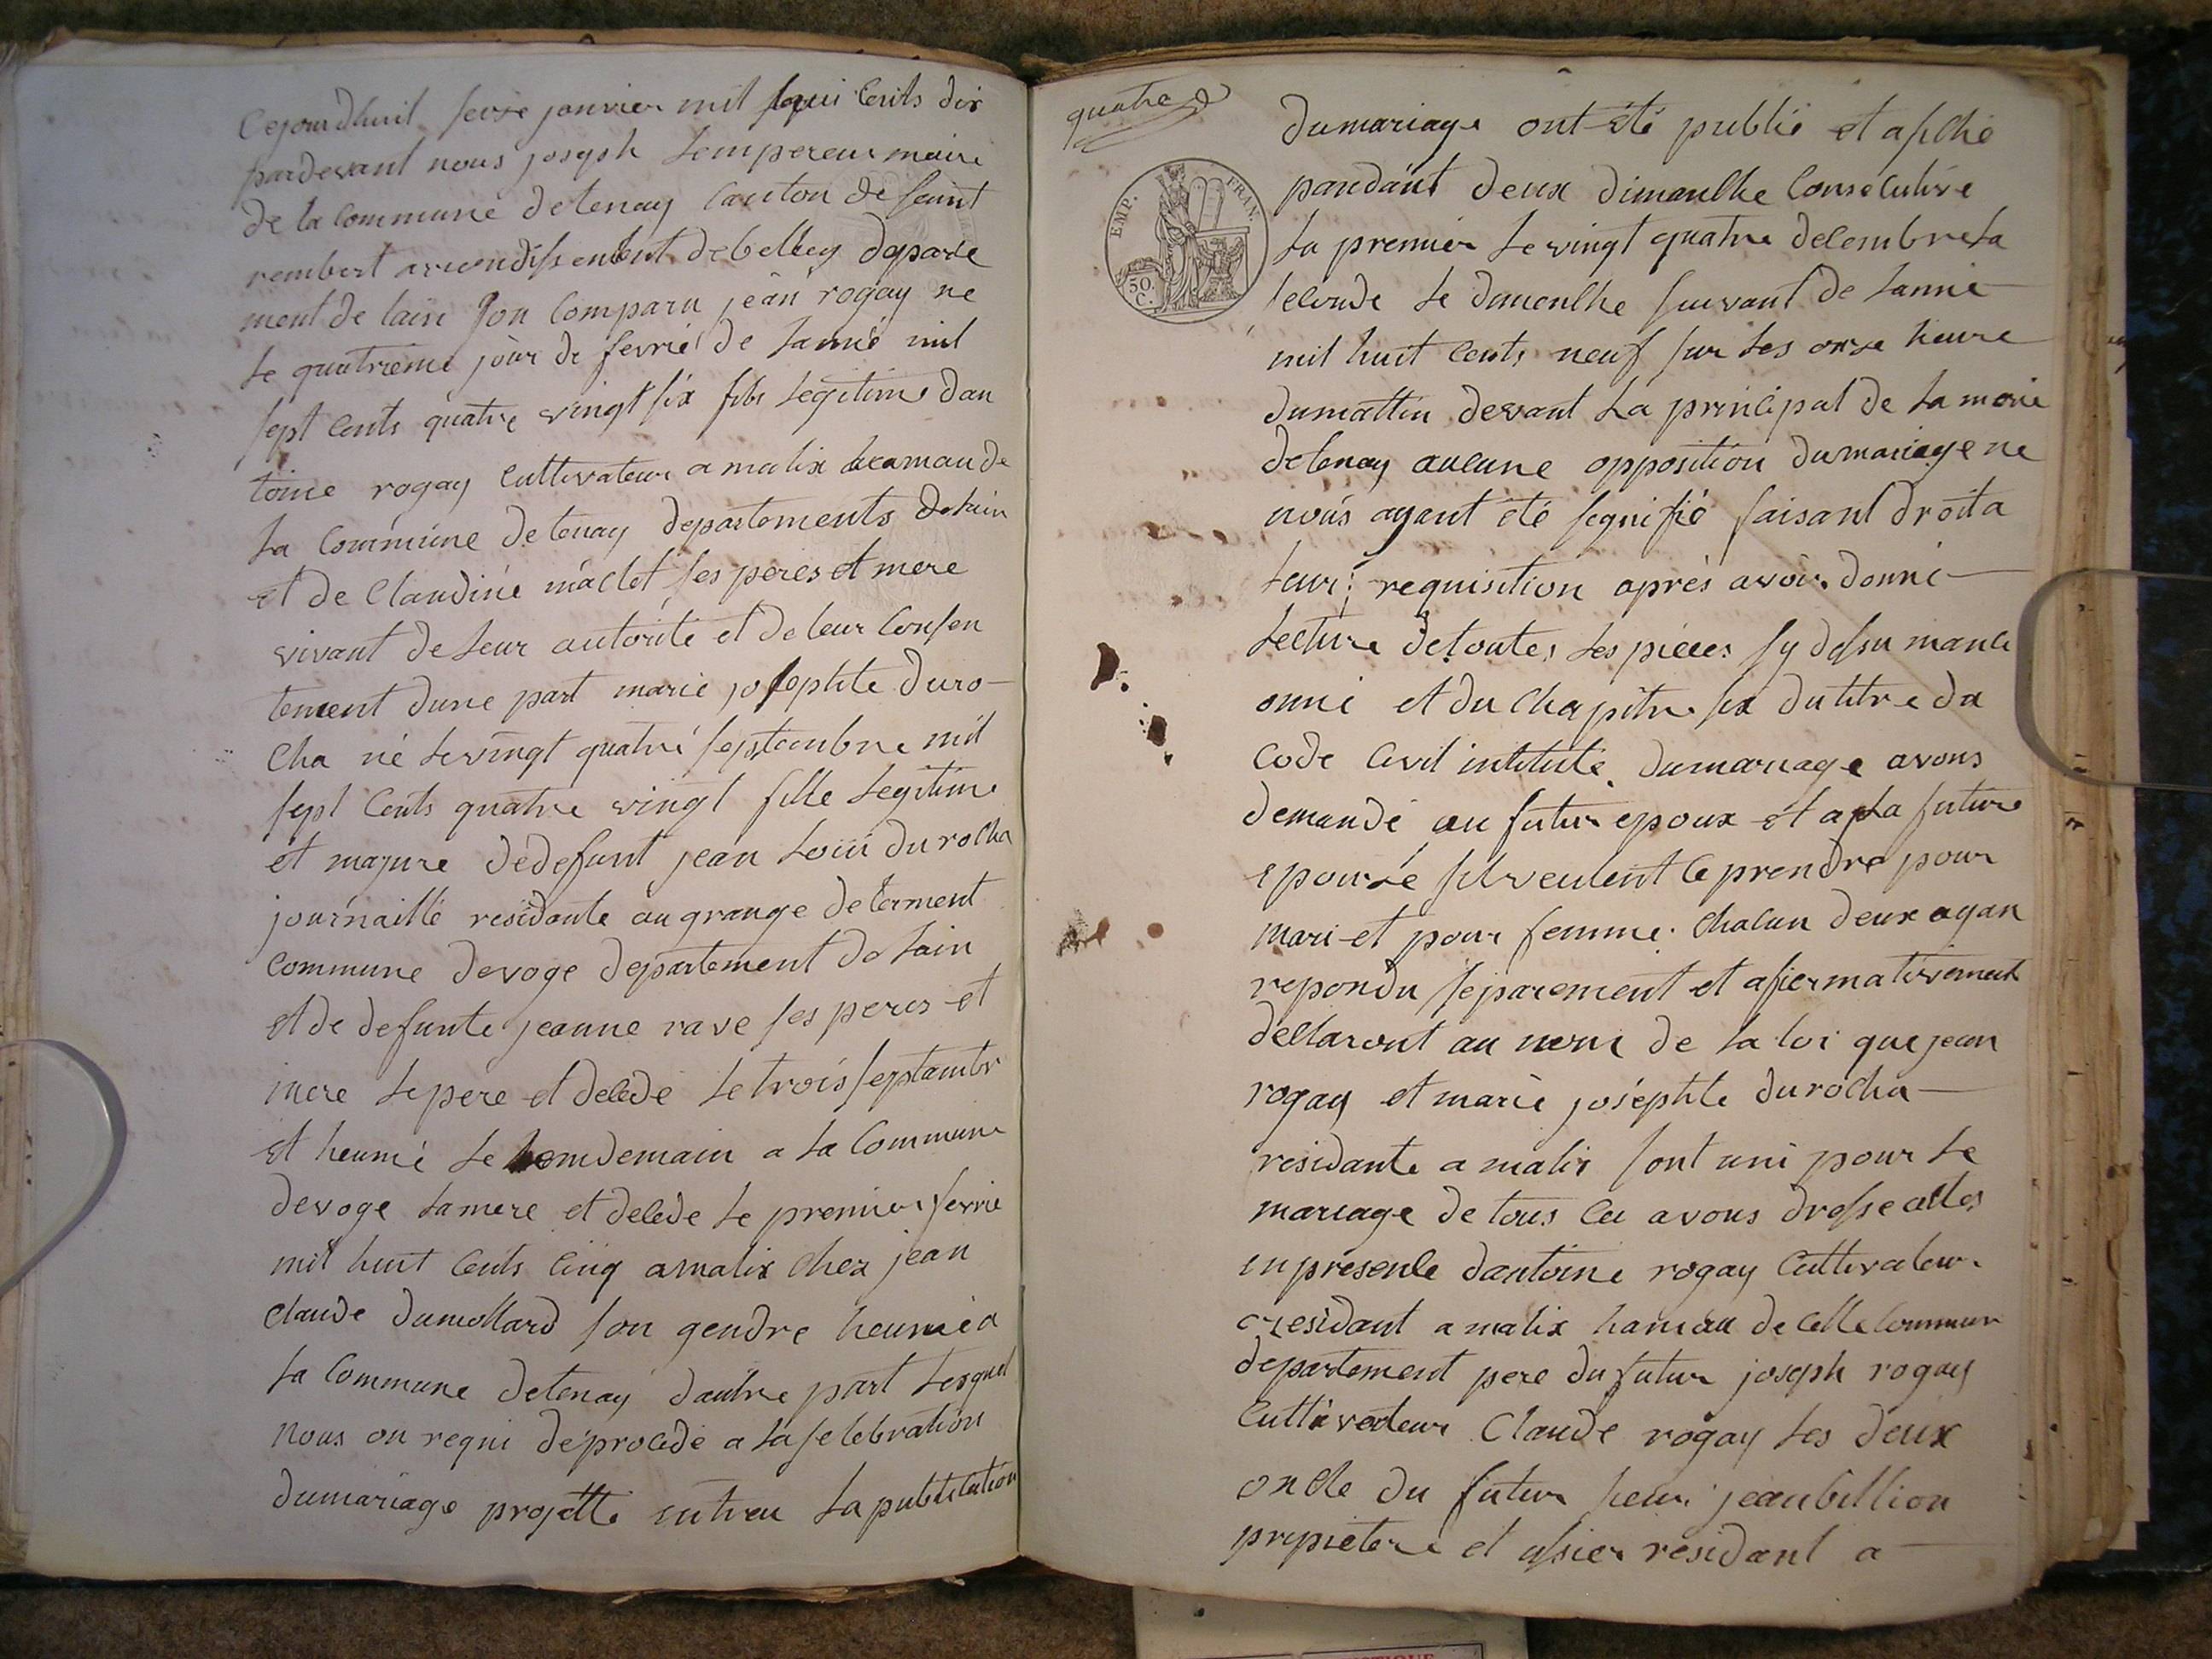 Cejourdhuil seise janvier mil huit cents dix
pardevant nous joseph Lempereur maire
de la Commune detenay Canton de saint
rembert arrondissement debelley departe
ment de lain son Comparu jean rogay ne
le quatrieme jour de fevrié de lannié mil
sept Cents quatre vingt six fils Legitime dan
toine rogay Cultivateur a malix hamau de
la Commune detenay departements de lain
et de Claudine maclet ses peres et mere
vivant de leur autorité et de leur Consen
tement dune part marie josephte duro-
Cha né le vingt quatre septembre mil
sept Cents quatre vingt fille Legitime
et majure dedefunt jean Louis durocha
journaillé residante au grange determent
Commune devoge departement de lain
et de defunte jeanne rave ses peres et
mere le pere et decede le trois septambr
et heumé le lemdemain a la Commune
devoge la mere et decede le premier fevrie
mil huit Cents Cinq amalix Chez jean
Claude dumollard son gendre heumé a
la Commune detenay dautre part Lesquel
nous on requi de procede a la selebration
dumariage projetté entreu La publication
quatre
EMP. FRAN.
50. C.
dumariage ont été publié et afiché
pandant deux dimanche Consecutive
La premier Le vingt quatre decembre La
seconde Le dimenche suivant de Lannié
mil huit Cents neuf sur Les onze heure
dumattin devant La principal de La morie
detenay aucune opposition dumariage ne
nous ayant été segnifié faisant droit a
leur requisition après avoir donné
Lecture de toutes Les piéces sy desu manci
onné et du Chapitre six dutitre da
Code Civil intitulé dumariage avons
demandé au futur epoux et a La future
epouse silveulent ce prendre pour
mari et pour femme Chacun deux ayan
repondu separement et afiermativement
declaront au nom de La loi que jean
rogay et marie josephte durocha
residante a malix sont uni pour Le
mariage de tous Ceci avons dresse actes
en presence dantoine rogay Cultivateur
residant a malix hamau de Celle Commun
departement pere du futur joseph rogay
Cultivateur Claude rogay Les deux
oncle du futur jeanbillion
propietere et residant a